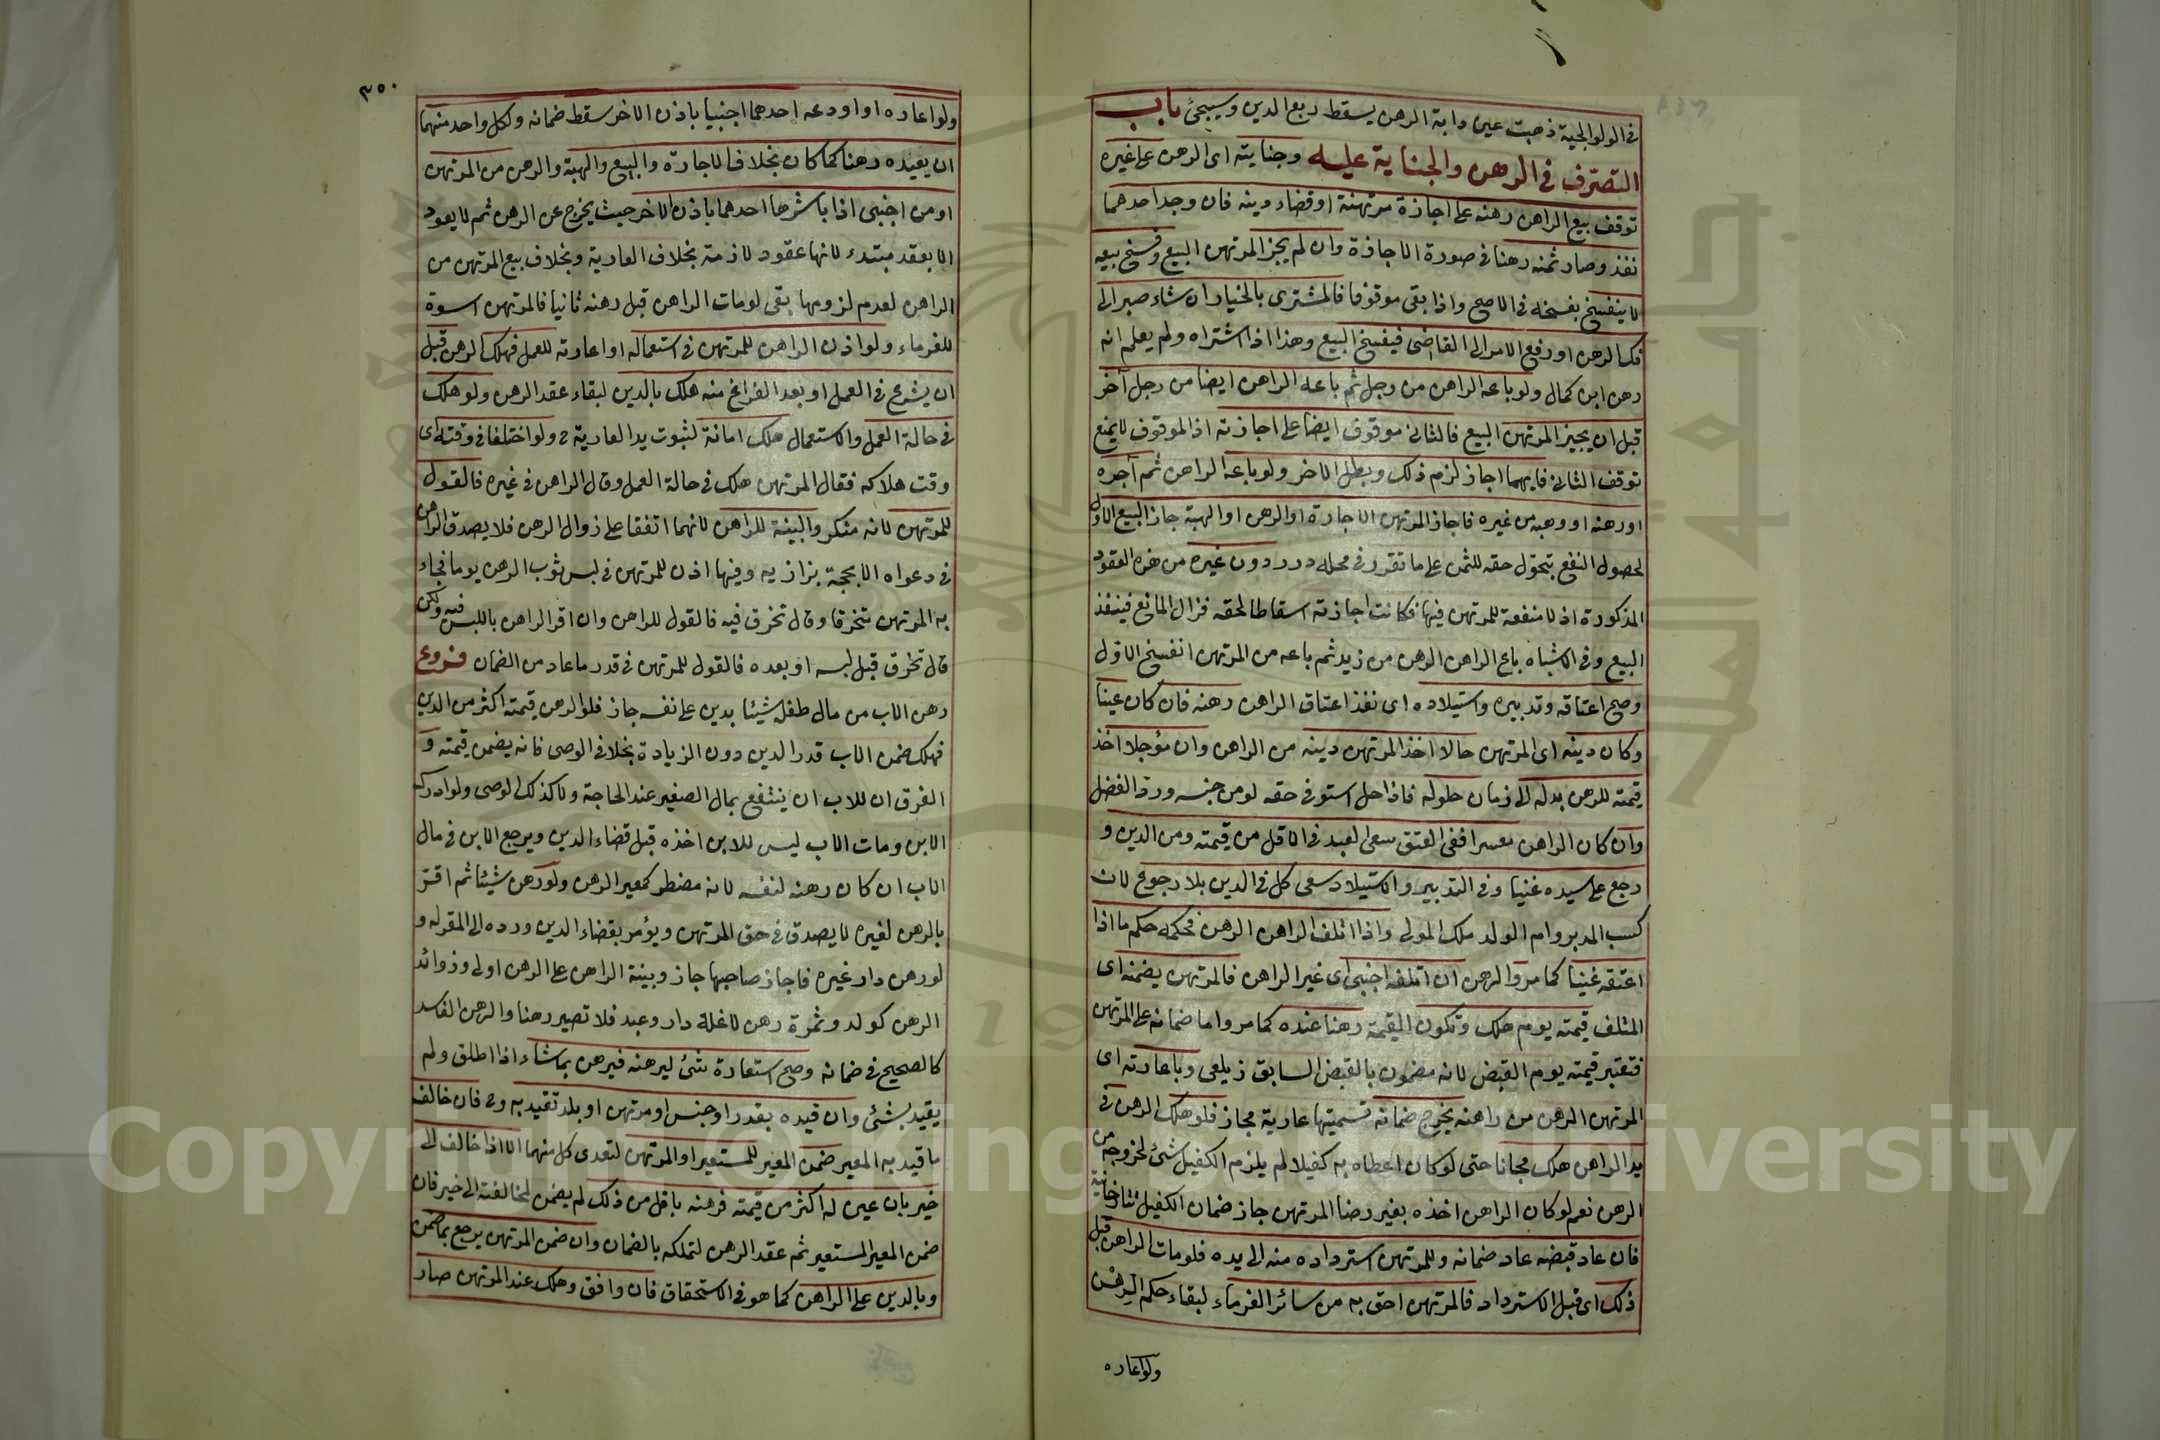 في الولوالجية ذهبت عين دابة الرهن يسقط ربع الدين وسيجئ باب
التصرف في الرهن والجناية عليه وجنايته اى الرهن على غيره
توقف بيع الراهن رهنه على اجازة مرتهنة او قضاء دينه فان وجد احدهما
نفذ وصار ثمنه رهنا في صورة الاجازة وان لم يجز المرتهن البيع وفسخ بيعه
لا ينفسخ بفسخه في الاصح واذا بقى موقوفا فالمشترى بالخيار ان شاء صبر الى
فك الرهن او رفع الامر الى القاضى فيفسخ البيع وهذا اذا اشتراه ولم يعلم انه
رهن ابن كمال ولو باعه الراهن من رجل ثم باعه الراهن ايضا من رجل آخر
قبل ان يجيز المرتهن البيع فالثانى موقوف ايضا على اجازته اذ الموقوف لا يمنع
توقف الثانى فايهما اجاز لزم ذلك وبطل الاخر ولو باعه الراهن ثم آجره
او رهنه او وهبه من غيره فاجاز المرتهن الاجارة او الرهن او الهبة جاز البيع الاول
لحصول النفع بتحول حقه للثمن على ما تقرر في محله درر دون غيره من هذه العقود
المذكورة اذ لا منفعة للمرتهن فيها فكانت اجازته اسقاطا لحقه فزال المانع فينفذ
البيع وفي الاشباه باع الراهن الرهن من زيد ثم باعه من المرتهن انفسخ الاول
وصح اعتاقه وتدبيره واستيلاده اى نفذ اعتاق الراهن رهنه فان كان غينا
وكان دينه اى المرتهن حالا اخذ المرتهن دينه من الراهن وان مؤجلا اخذ
قيمته للرهن بدله الى زمان حلوله فاذا حل استوفى حقه لو من جنسه ورد الفضل
وان كان الراهن معسرا ففى العتق سعى العبد في الاقل من قيمته ومن الدين و
رجع على سيده غنيا وفي التدبير والاستيلاد سعى كل في الدين بلا رجوع لان
كسب المدبر وام الولد ملك المولى واذا اتلف الراهن الرهن فحكمه حكم ما اذا
اعتقه غينا كما مر والرهن ان اتلفه اجنبى اى غير الراهن فالمرتهن يضمنه اى
المتلف قيمته يوم هلك وتكون القيمة رهنا عنده كما مر واما ضمانه على المرتهن
فتعتبر قيمته يوم القبض لانه مضمون بالقبض السابق زيلعى وباعارته اى
المرتهن الرهن من راهنه يخرج ضمانه تسميتها عارية مجاز فلو هلك الرهن في
يد الراهن هلك مجانا حتى لو كان اعطاه به كفيلا لم يلزم الكفيل شئ لخروجه من
الرهن نعم لو كان الراهن اخذه بغير رضا المرتهن جاز ضمان الكفيل تتارخانية
فان عاد قبضه عاد ضمانه وللمرتهن استرداده منه الى يده فلو مات الراهن قبل
ذلك اى قبل الاسترداد فالمرتهن احق به من سائر الغرماء لبقاء حكم الرهن
ولو اعاره
٣٥٠
ولو اعاره او اودعه احدهما اجنبيا باذن الاخر سقط ضمانه ولكل واحد منهما
ان يعيده رهنا كما كان بخلاف الاجارة والبيع والهبة والرهن من المرتهن
او من اجنبى اذا باشرها احدهما باذن الاخر حيث يخرج عن الرهن ثم لا يعود
الا بعقد مبتدء لانها عقود لازمة بخلاف العارية وبخلاف بيع المرتهن من
الراهن لعدم لزومها بقى لو مات الراهن قبل رهنه ثانيا فالمرتهن اسوة
للغرماء ولو اذن الراهن للمرتهن في استعماله او اعارته للعمل فهلك الرهن قبل
ان يشرع في العمل او بعد الفراغ منه هلك بالدين لبقاء عقد الرهن ولو هلك
في حالة العمل والاستعمال هلك امانة لثبوت يد العارية ح ولو اختلفا في وقته اى
وقت هلاكه فقال المرتهن هلك في حالة العمل وقال الراهن في غيره فالقول
للمرتهن لانه منكر والبينة للراهن لانهما اتفقا على زوال الرهن فلا يصدق الراهن
في دعواه الا بحجة بزازيه وفيها اذن للمرتهن في لبس ثوب الرهن يوما فجاء
به المرتهن متخرقا وقال تخرق فيه فالقول للراهن وان اقر الراهن باللبس فيه ولكن
قال تخرق قبل لبسه او بعده فالقول للمرتهن في قدر ما عاد من الضمان فروع
رهن الاب من مال طفله شيئا بدين على نفسه جاز فلو الرهن قيمته اكثر من الدين
فهلك ضمن الاب قدر الدين دون الزيادة بخلاف الوصى فانه يضمن قيمته و
الفرق ان للاب ان ينتفع بمال الصغير عند الحاجة ولا كذلك الوصى ولو ادرك
الابن ومات الاب ليس للابن اخذه قبل قضاء الدين ويرجع الابن في مال
الاب ان كان رهنه لنفسه لانه مضطر كمعير الرهن ولو رهن شيئا ثم اقر
بالرهن لغيره لا يصدق في حق المرتهن ويؤمر بقضاء الدين ورده الى المقر له و
لو رهن دار غيره فاجاز صاحبها جاز وبينة الراهن على الرهن اولى وزوائد
الرهن كولد وثمرة رهن لا غلة دار وعبد فلا تصير رهنا والرهن الفاسد
كالصحيح في ضمانه وصح استعارة شئ ليرهنه فيرهن بما شاء اذا اطلق ولم
يقيد بشئ وان قيده بقدر او جنس او مرتهن او بلد تقيد به وح فان خالف
ما قيد به المعير ضمن المعير للمستعير او المرتهن لتعدى كل منهما الا اذا خالف الى
خير بان عين له اكثر من قيمته فرهنه باقل من ذلك لم يضمن لمخالفته الى خير فان
ضمن المعير المستعير تم عقد الرهن لتملكه بالضمان وان ضمن المرتهن يرجع بما ضمن
وبالدين على الراهن كما هو في الاستحقاق فان وافق وهلك عند المرتهن صار
Copyright © King Saud University